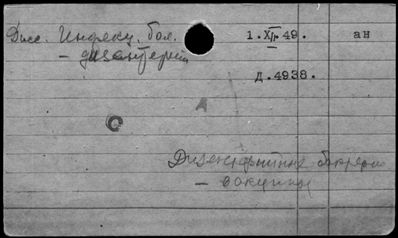 Дисс. Инфекц. бол. 1.XII.49. ан
– дизентерия
Д.4938.
А
Дизентерийные бактерии
– вакцины